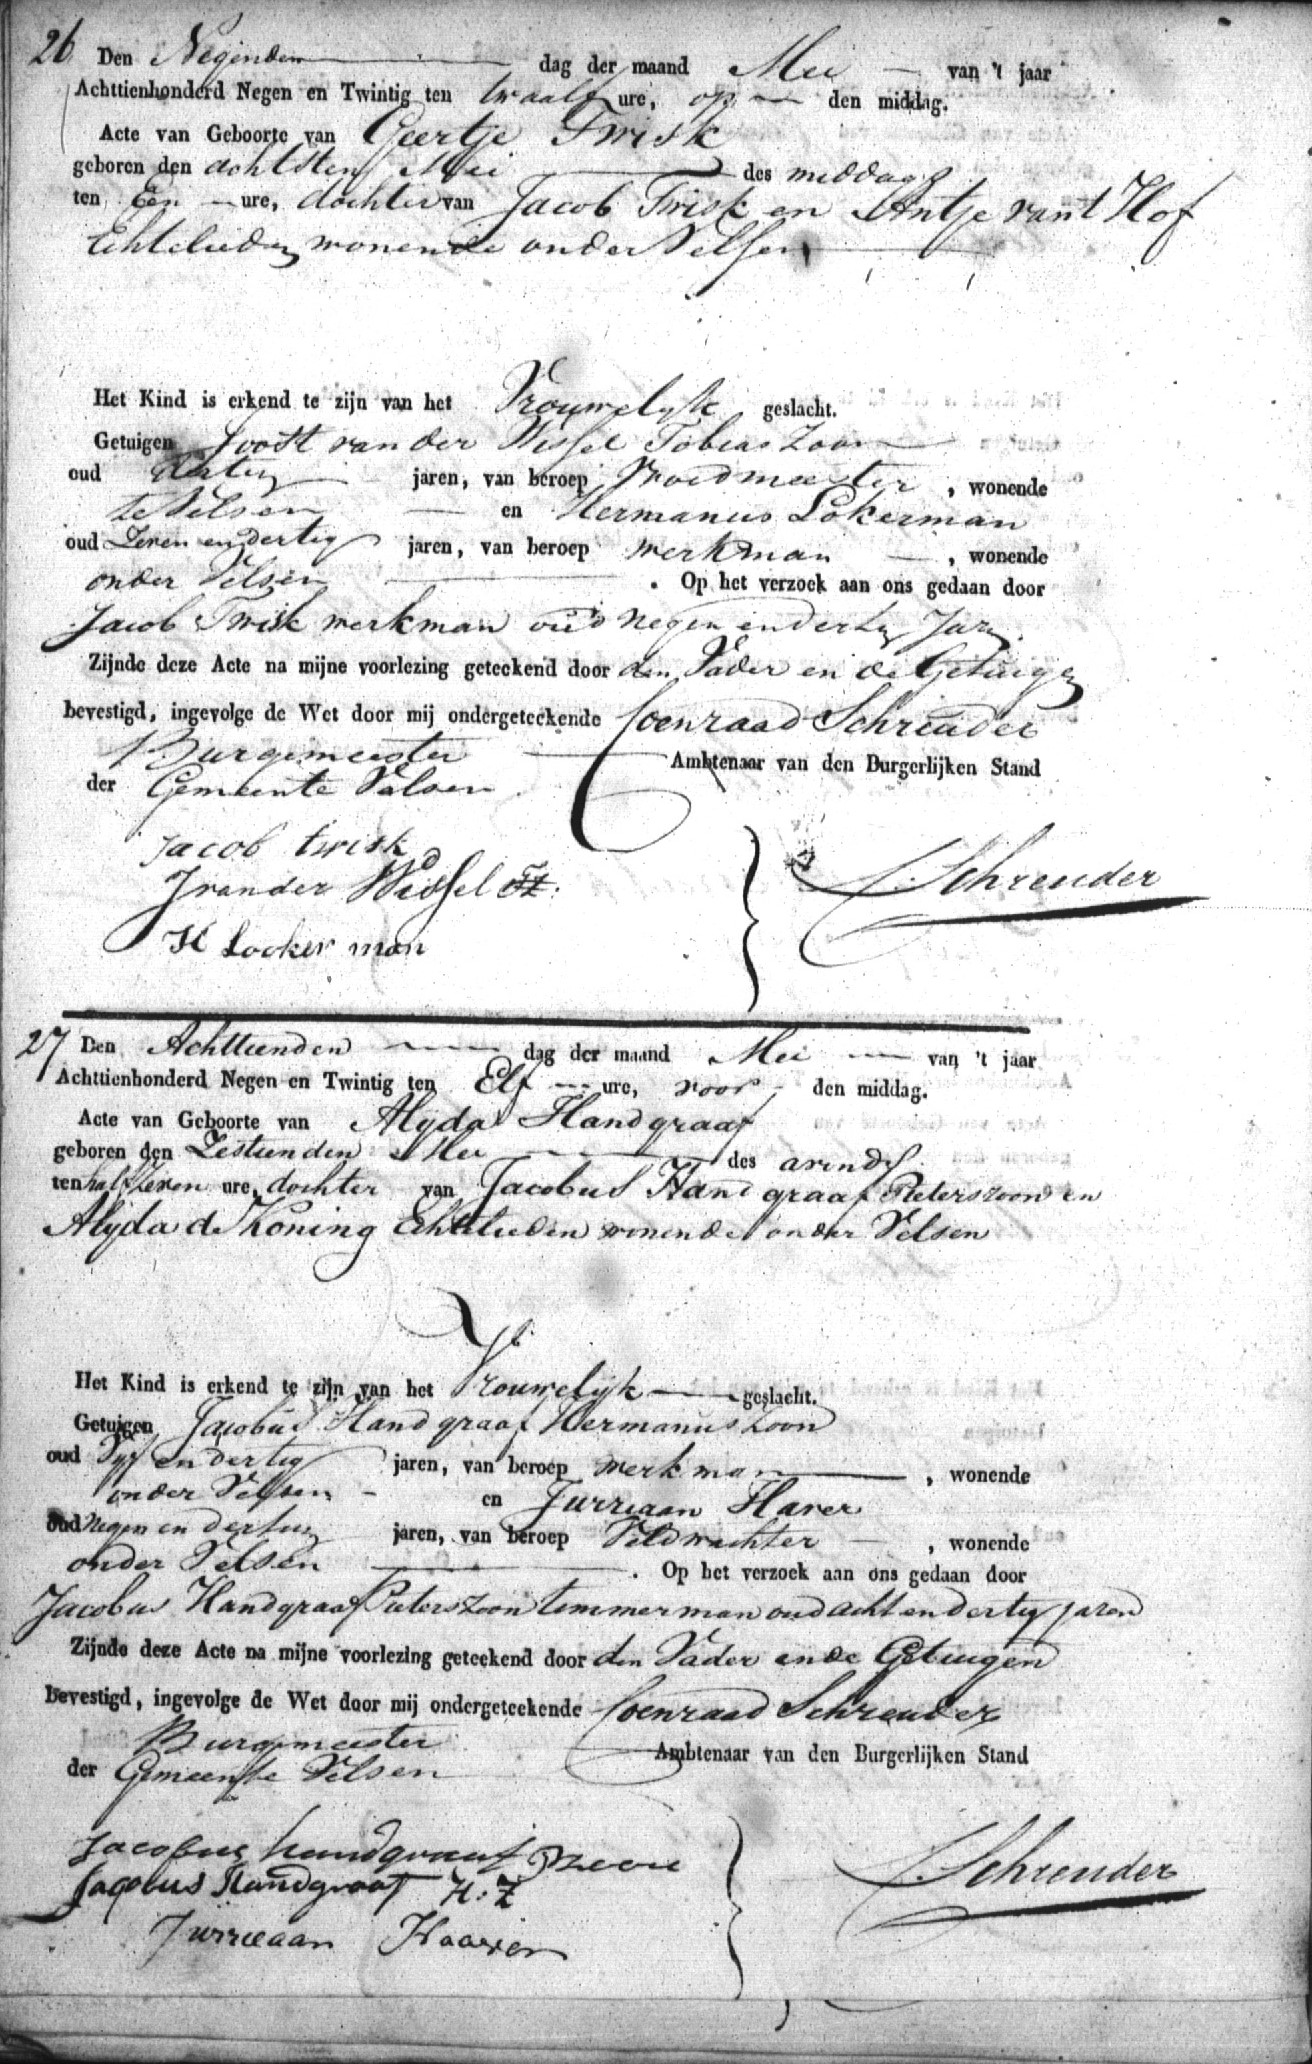 26 Den Negenden dag der maand Mei van 't jaar
Achttienhonderd Negen en Twintig ten twaalf ure, op den middag.
Acte van Geboorte van Geertje Twisk
geboren den achtsten Mei des middags
ten Een ure, dochter van Jacob Twisk en Antje vant Hof
Echtelieden wonende onder Velsen
Het Kind is erkend te zijn van het Vrouwelyk geslacht.
Getuigen Joost van der Wissel Tobias Zoon
oud dertig jaren, van beroep Vroedmeester, wonende
te Velsen en Hermanus Lokerman
oud Zeven en dertig jaren, van beroep werkman, wonende
onder Velsen. Op het verzoek aan ons gedaan door
Jacob Twisk werkman oud negen en dertig Jaren
Zijnde deze Acte na mijne voorlezing geteekend door den Vader en de Getuigen
bevestigd, ingevolge de Wet door mij ondergeteekende Coenraad Schreuder
Burgemeester Ambtenaar van den Burgerlijken Stand
der Gemeente Velsen.
Jacob twisk
J van der Wissel TZ:
H Looker man
C. Schreuder
27 Den Achttienden dag der maand Mei van 't jaar
Achttienhonderd Negen en Twintig ten Elf ure, voor den middag.
Acte van Geboorte van Alyda Handgraaf
geboren den Zestienden Mei des avonds
ten half Zeven ure, dochter van Jacobus Handgraaf Pieterszoon en
Alyda de Koning Echtelieden wonende onder Velsen
Het Kind is erkend te zijn van het Vrouwelyk geslacht.
Getuigen Jacobus Handgraaf Hermanus Zoon
oud Vyf en dertig jaren, van beroep werkman, wonende
onder Velsen en Jurriaan Haver
oud negen en dertig jaren, van beroep Veldwachter, wonende
onder Velsen. Op het verzoek aan ons gedaan door
Jacobus Handgraaf Pieterszoon timmerman oud acht en dertig jaren
Zijnde deze Acte na mijne voorlezing geteekend door den Vader en de Getuigen
bevestigd, ingevolge de Wet door mij ondergeteekende Coenraad Schreuder
Burgemeester Ambtenaar van den Burgerlijken Stand
der Gemeente Velsen
Jacobus handgraaf
Jacobus Handgraaf H:Z
Jurriaan
C. Schreuder